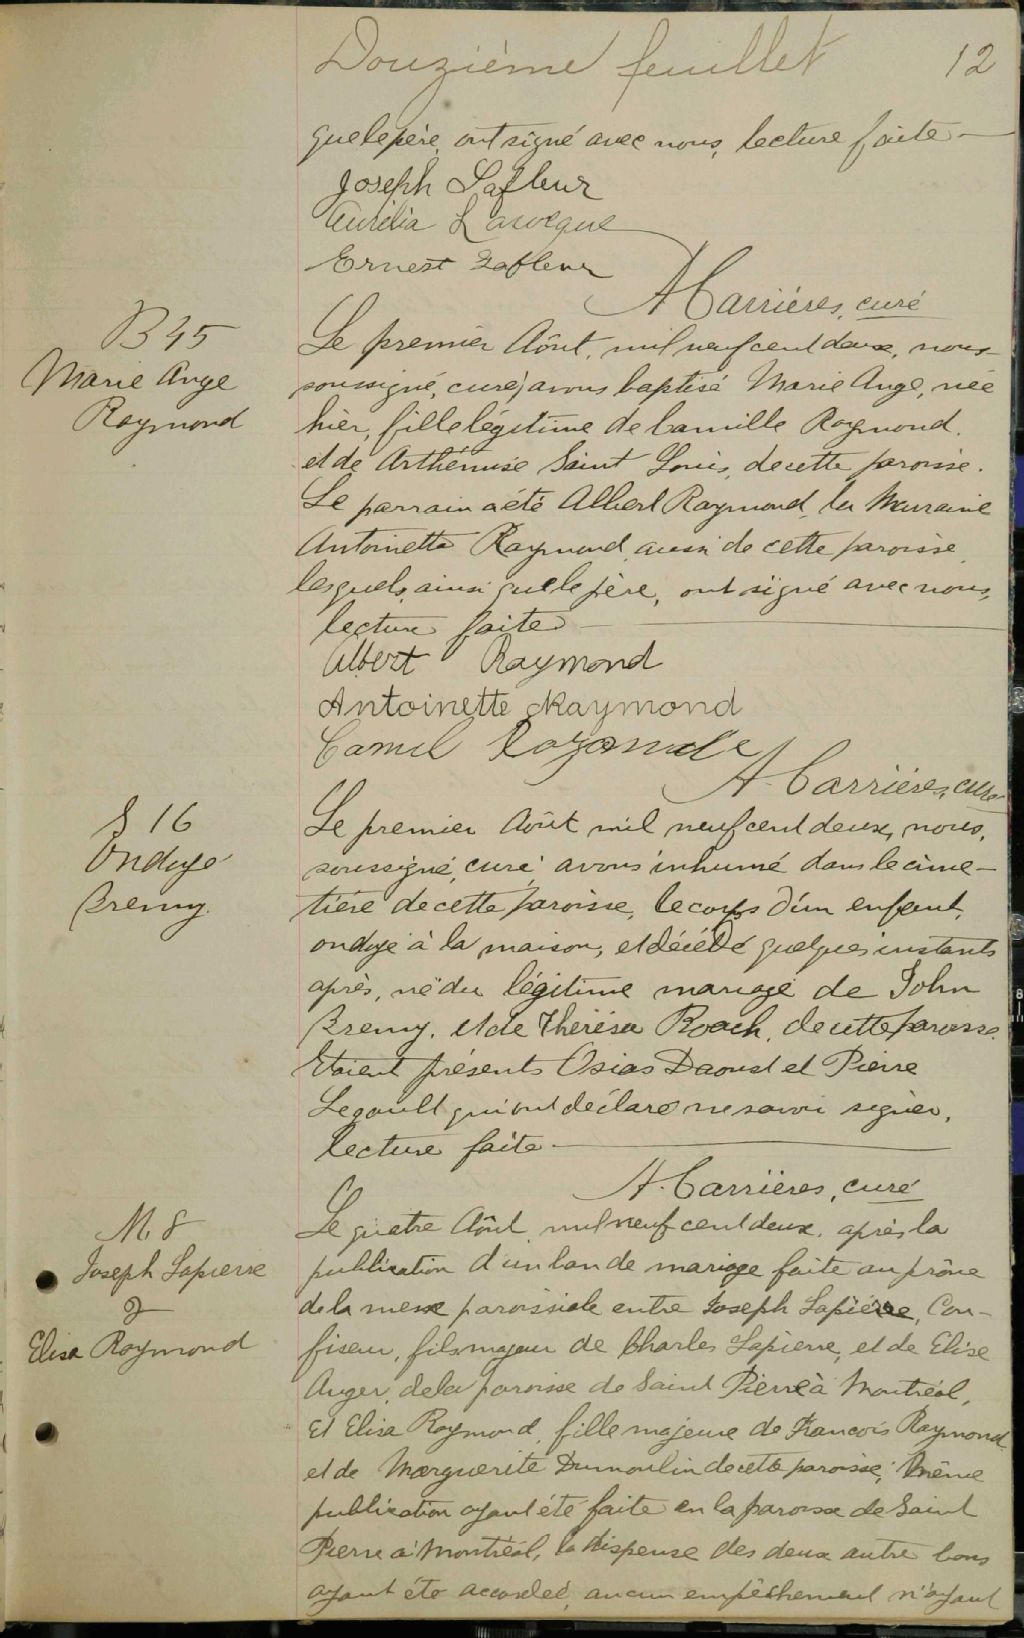 Douzième feuillet 12
que le père, ont signé avec nous, lecture faite —
Joseph Lafleur
Aurélia Larocque
Ernest Lafleur
A Carrières, curé
B 45
Marie Ange
Raymond
Le premier Août, mil neuf cent deux, nous
soussigné, curé, avons baptisé Marie Ange, née
hier, fille légitime de Camille Raymond.
et de Arthémise Saint Louis, de cette paroisse.
Le parrain a été Albert Raymond, la Marraine
Antoinette Raymond aussi de cette paroisse
lesquels, ainsi que le père, ont signé avec nous,
lecture faite —
Albert Raymond
Antoinette Raymond
Camil
A. Carrières, curé
S 16
Ondoyé
Bremy.
Le premier Août mil neuf cent deux, nous,
soussigné, curé, avons inhumé dans le cime-
tière de cette paroisse, le corps d'un enfant,
ondoyé à la maison, et décédé quelques instants
après, né du légitime mariage de John
Bremy. et de Thérésa Roach, de cette paroisse.
Etaient présents Osias Daoust et Pierre
Legault qui ont déclaré ne savoir signer,
lecture faite —
A. Carrières, curé
M. 8
Joseph Lapierre
&
Elisa Raymond
Le quatre Août mil neuf cent deux, après la
publication d'un ban de mariage faite au prône
de la messe paroissiale entre Joseph Lapierre, Con-
fiseur, fils majeur de Charles Lapierre, et de Elise
Auger, de la paroisse de Saint Pierre à Montréal,
Et Elisa Raymond, fille majeure de Francois Raymond
et de Marguerite Dumoulin de cette paroisse; Même
publication ayant été faite en la paroisse de Saint
Pierre à Montréal, la dispense des deux autre bans
ayant été accordée, aucun empêchement n'ayant